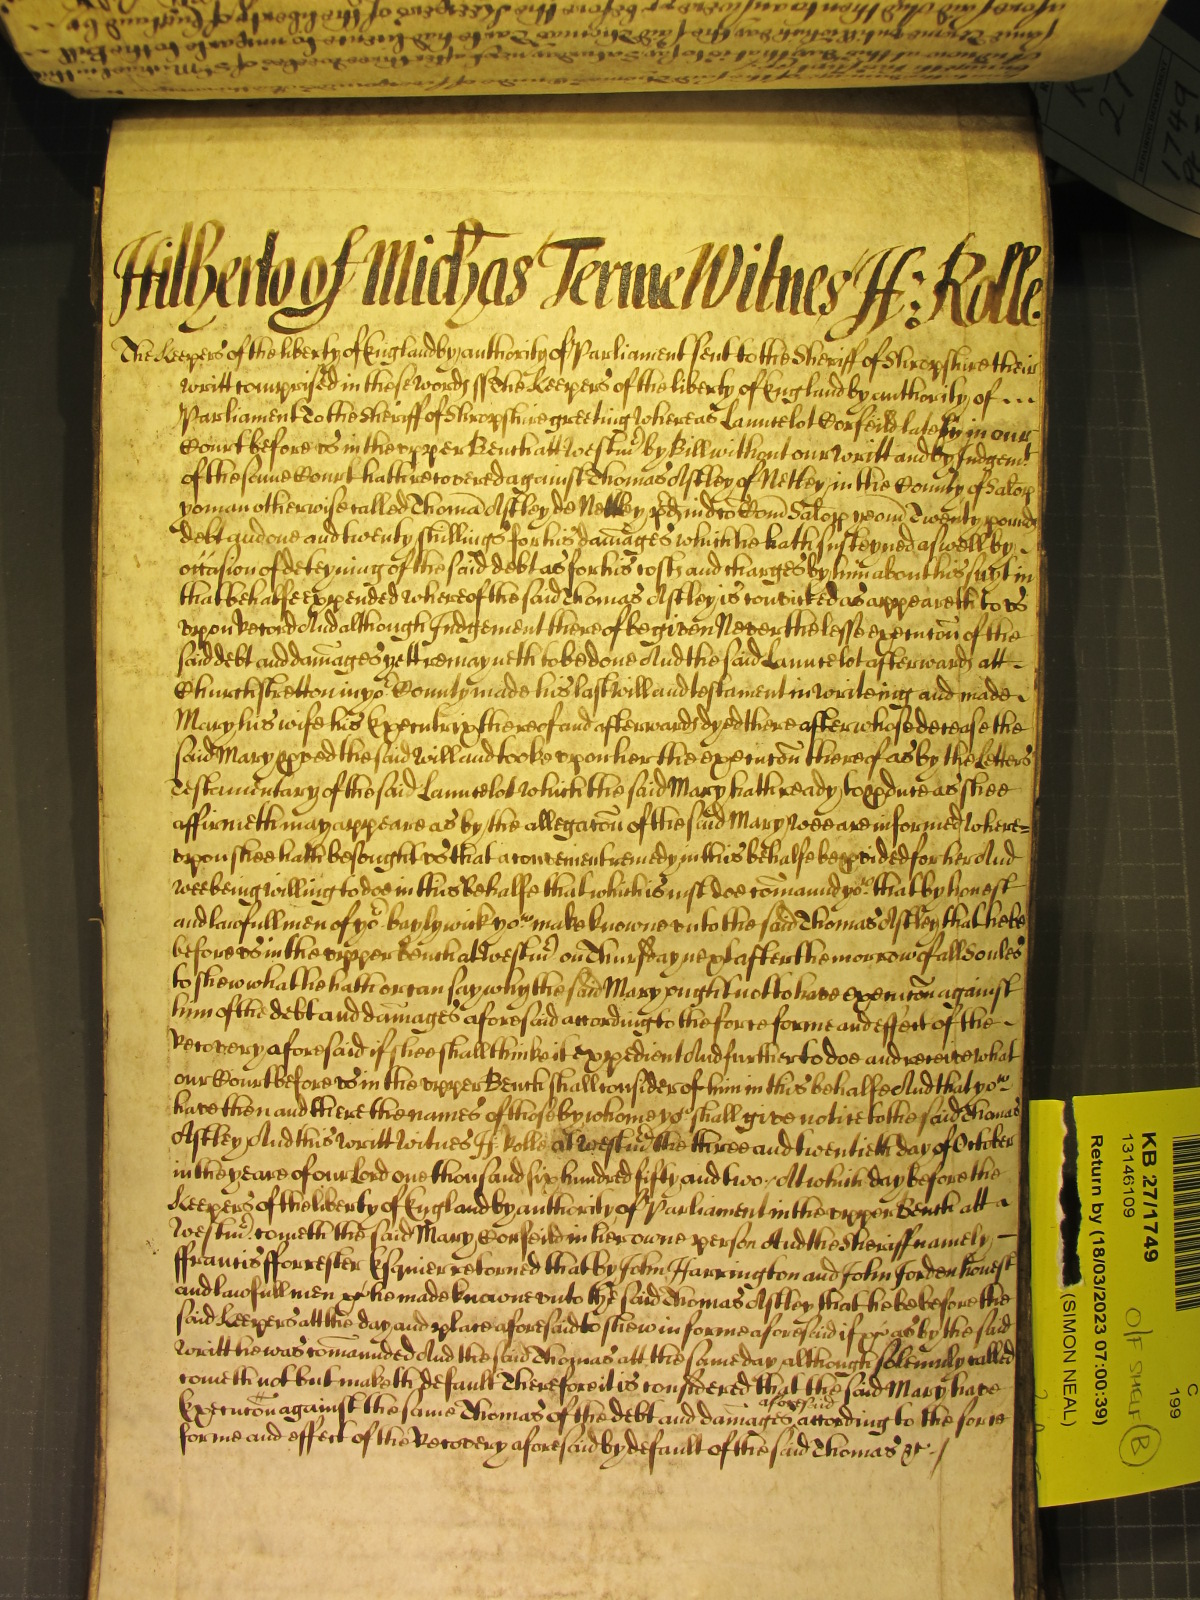 Hitherto of Michas Terme Witnes H: Rolle
The Keepers of the liberty of England by authority of Parliament sent to the Sheriff of Shropshire their
writt comprised in these words ss The Keepers of the liberty of England by authority of
Parliament To the Sheriff of Shropshire greeting Whereas Launcelot Corfeild lately in our
Court before us in the upper Bench att Westmr by Bill without our writt and by Judgemt
of the same Court hath recovered against Thomas Astley of Netley in the County of Salop
yoman otherwise called Thomā Astley de Netley in Com Salop yeom Twenty pounds
debt and one and twenty shillings for his damages which he hath susteyned aswell by
occasion of deteyning of the said debt as for his costs and charges by him about his suyt in
that behalfe expended whereof the said Thomas Astley is convicted as appeareth to us
upon Record And although Judgement thereof be given Neverthelesse execucon of the
said debt and damages yett remayneth to be done And the said Launcelot afterwards att
Churchstretton in yor County made his last will and testament in writeing and made
Mary his wife his Executrix thereof and afterwards dyed there after whose decease the
said Mary pved the said will and tooke upon her the execucon thereof as by the Letters
Testamentary of the said Launcelot which the said Mary hath ready to pduce as shee
affirmeth may appeare as by the allegacon of the said Mary wee are informed Where=
upon shee hath besought us that a convenient remedy in this behalfe be pvided for her And
wee being willing to doe in this behalfe that which is just doe comaund you that by honest
and lawfull men of yor baylywick you make knowne unto the said Thomas Astley that he be
before us in the upper Bench at Westmr on Thursday next after the morrow of all Soules
to shew what he hath or can say why the said Mary ought not to have execucon against
him of the debt and damages aforesaid according to the force forme and effect of the
Recovery aforesaid if shee shall thinke it expedient And further to doe and receive what
our Court before us in the upper Bench shall consider of him in this behalfe And that you
have then and there the names of those by whome you shall give notice to the said Thomas
Astley And this writt Witnes H: Rolle at Westmr the three and twentieth day of October
in the yeare of our Lord one thousand six hundred fifty and two. At which day before the
Keepers of the liberty of England by authority of Parliament in the upper Bench att
Westmr cometh the said Mary Corfeild in her owne person And the Sheriff namely
ffrancis fforrester Esquier retorned that by John Harrington and John Jorden honest
and lawfull men he made knowne unto the said Thomas Astley that he be before the
said Keepers att the day and place aforesaid to shew in forme aforesaid if &c as by the said
writt he was comaunded And the said Thomas att the same day although solemnly called
cometh not but maketh default Therefore it is considered that the said Mary have
Execucon against the same Thomas of the debt and damages aforesaid according to the force
forme and effect of the Recovery aforesaid by default of the said Thomas &c
KB 27/1749
13146109
Return by (18/03/2023 07:00:39)
(SIMON NEAL)
C
199
O/F SHELF
B
27
1749